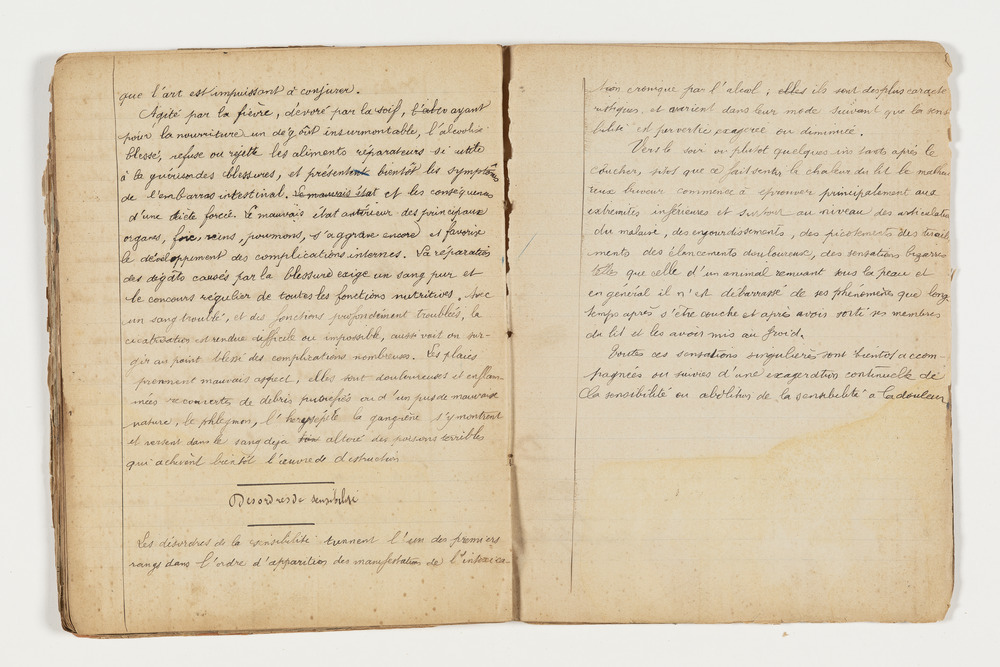 que l'art est impuissant à conjurer.
Agité par la fièvre, dévoré par la soif, ayant
pour la nourriture un dégoût insurmontable, l'alcoolisé
blessé, refuse ou rejette les aliments réparateurs si utile
à la guérison des blessures, et présente bientôt les symptômes
de l'embarras intestinal. Le mauvais état et les conséquences
d'une diète forcée. Le mauvais état antérieur des principaux
organes, foie, reins, poumons, s'aggrave encore et favorise
le développement des complications internes. La réparation
des dégâts causés par la blessure exige un sang pur et
le concours régulier de toutes les fonctions nutritives. Avec
un sang troublé, et des fonctions profondément troublées, la
cicatrisation est rendue difficile ou impossible, aussi voit on sur-
gir au point blessé des complications nombreuses. Les plaies
prennent mauvais aspect, elles sont douloureuses et enflam-
mées recouvertes de débris putrefiés ou d'un pus de mauvaise
nature, le phlegmon, l' la gangrène s'y montrent
et versent dans le sang deja altéré des poisons terribles
qui achèvent bientôt l'œuvre de distruction
Désordres de sensibilité
Les désordres de la sensibilité tiennent l'un des premiers
rangs dans l'ordre d'apparition des manifestations de l'intoxica-
tion cronique par l'alcool; elles ils sont des plus caracté
ristiques et varient dans leur mode suivant que la sensi
bilité est pervertie exagérée ou diminuée.
Vers le soir ou plutot quelques instants après le
coucher, sitot que se fait sentir la chaleur du lit le malheu
reux buveur commence à éprouver principalement aux
extremités inférieures et surtout au niveau des articulations
du malaise, des engourdissements, des picotements des tiraill
ments des élancements douloureux, des sensations bizarres
telle que celle d'un animal remuant sous la peau et
en général il n'est débarrassé de ses phénomènes que long
temps après s'être couché et après avoir sorti ses membres
du lit et les avoir mis au froid.
Toutes ces sensations singulières sont bientôt accom-
pagnées ou suivies d'une exagération continuelle de
la sensibilité ou abolition de la sensibilité à la douleur